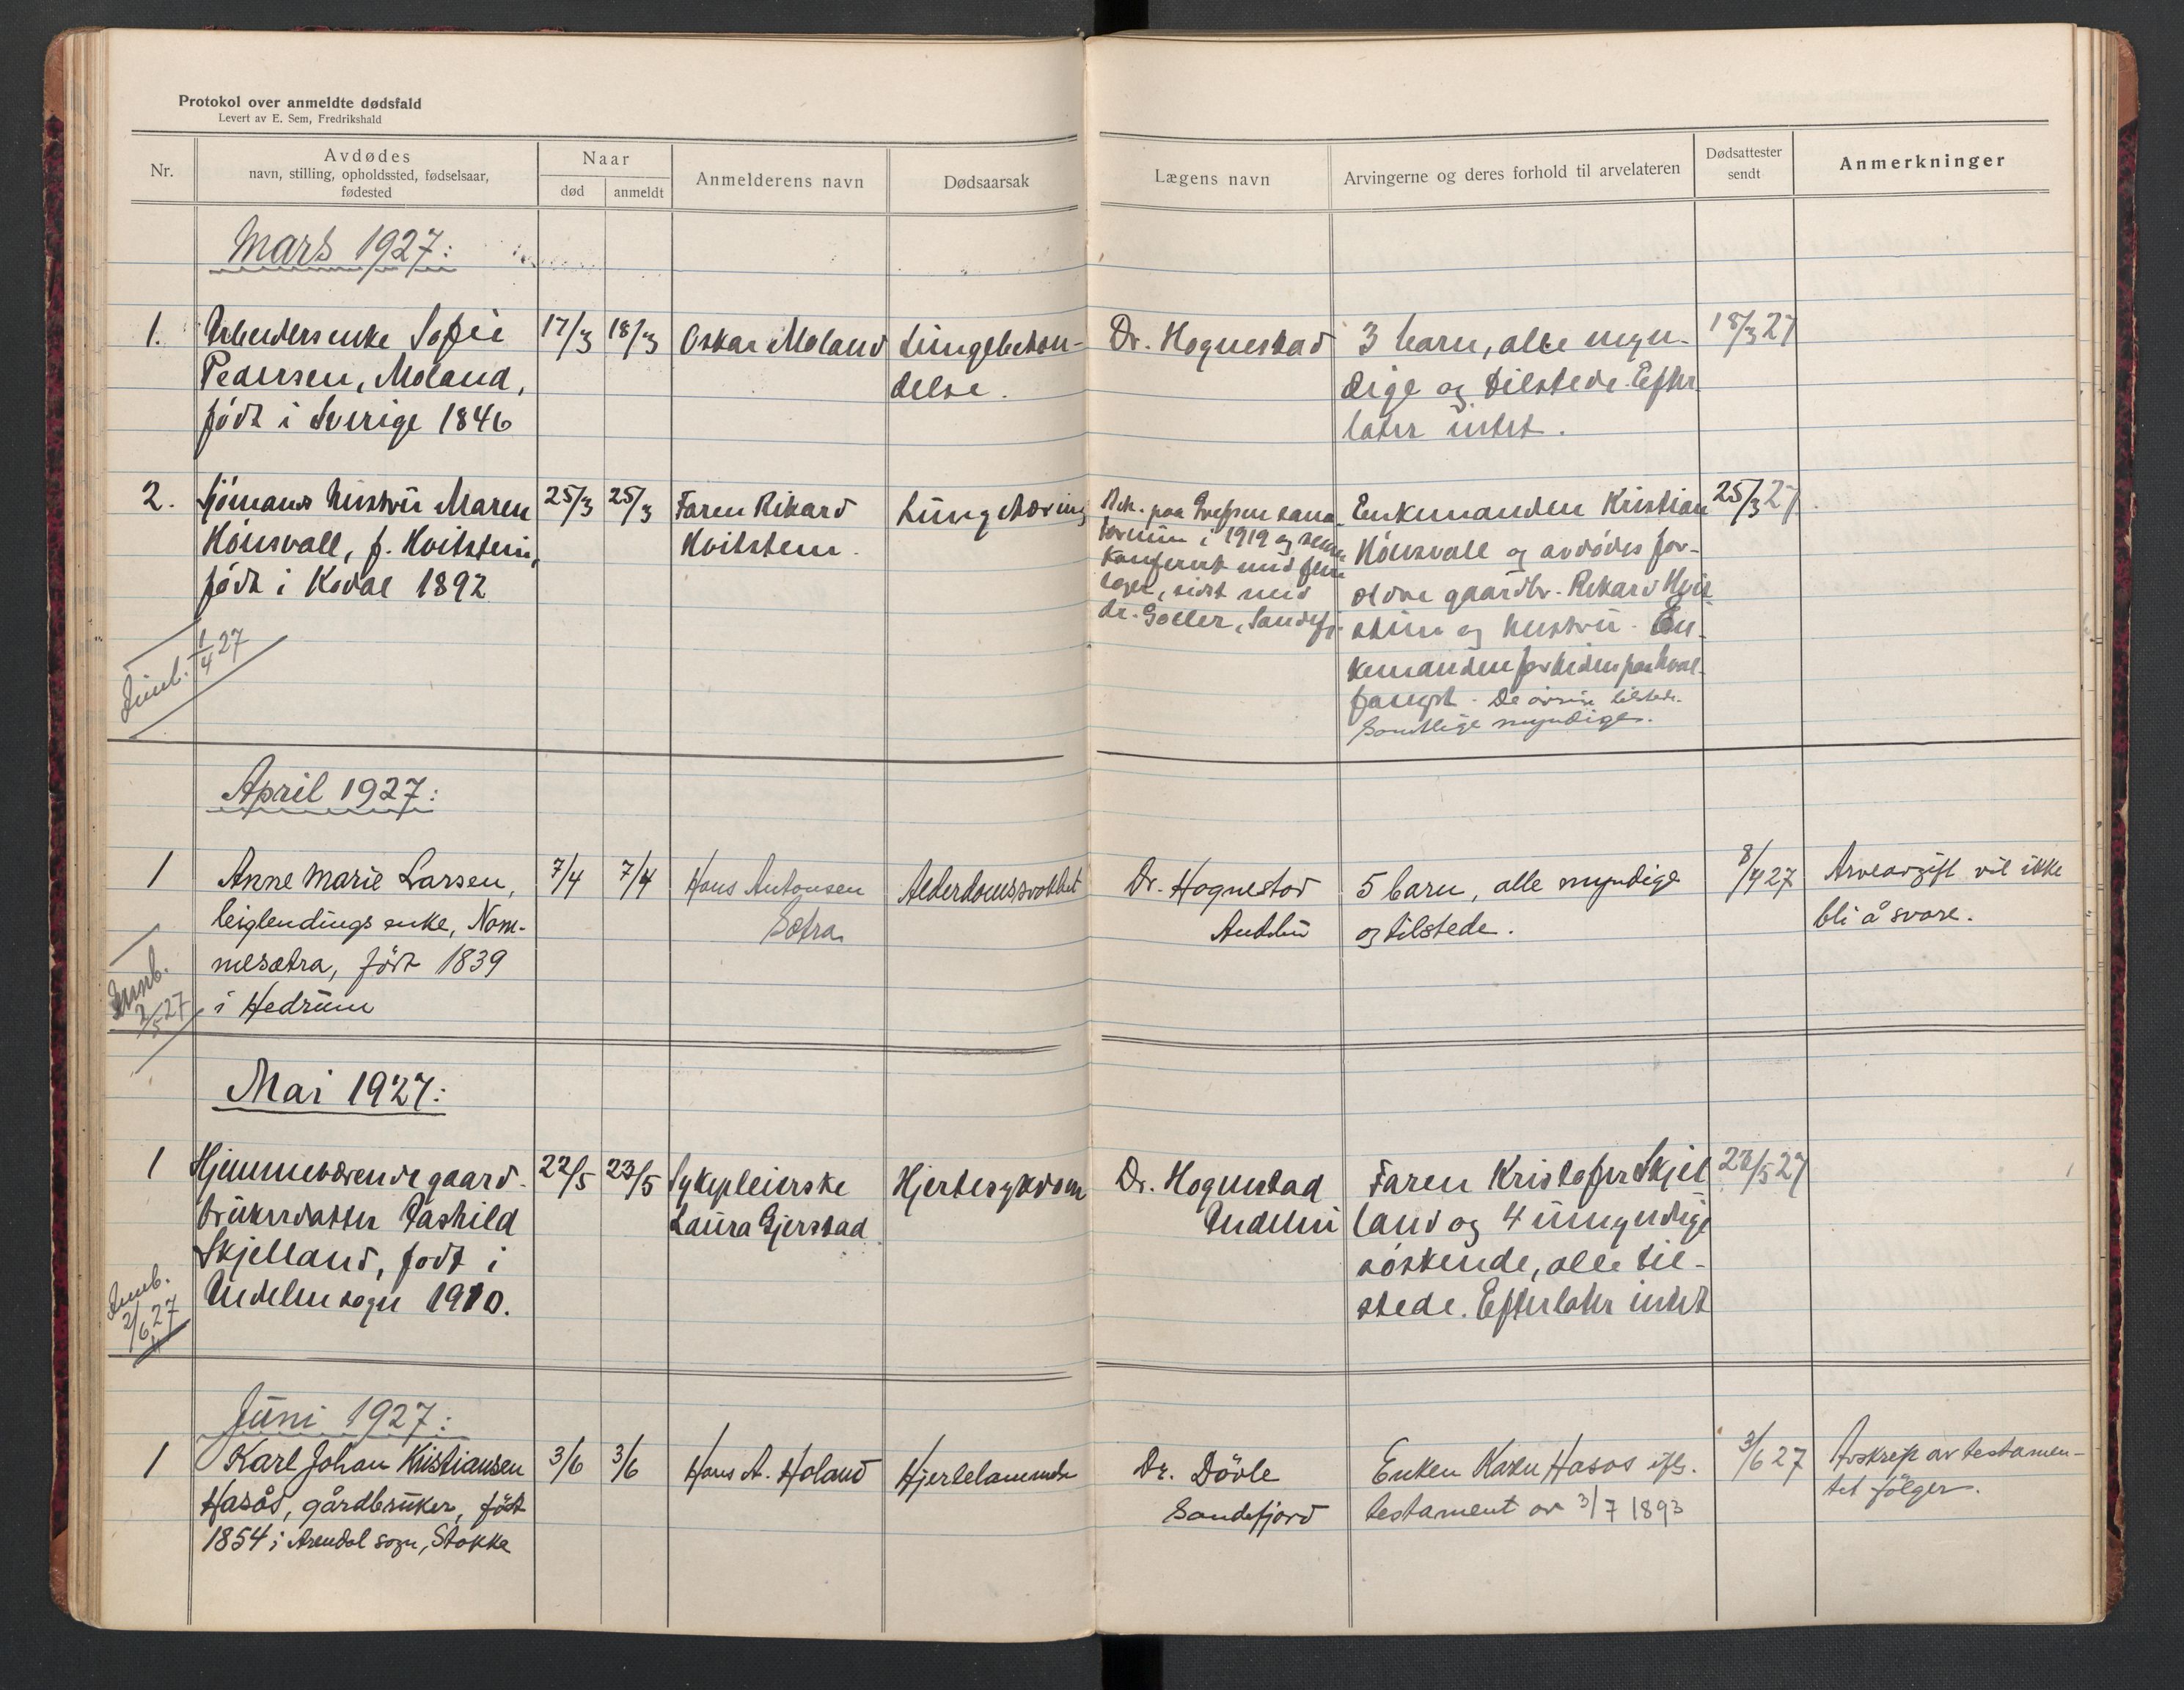 Protokol over anmeldte dødsfald
Levert av E. Sem, Fredrikshald
Nr.
Avdødes
navn, stilling, opholdssted, fødselsaar,
fødested
Naar
død
anmeldt
Anmelderens navn
Dødsaarsak
Lægens navn
Arvingerne og deres forhold til arvelateren
Dødsattester
sendt
Anmerkninger
Mars 1927:
1.
Arbeidersenke Sofie
Pedersen, Moland,
født i Sverige 1846
17/3
18/3
Oskar Moland
Lungebeten-
delse.
Dr. Hognestad
3 barn, alle myn-
dige og tilstede. Efter
later intet.
18/3 27
2.
Sjömans hustru Maren
Hönsvall, f. Hvitstein,
født i Kodal 1892
25/3
25/3
Faren Rikard
Hvitstein.
Lungetæring
Beh. paa Grefsen sana-
torium i 1919 og senere
konferert med flere
læger, sidst med
dr. Goller, Sandefj.
Enkemanden Kristian
Hönsvall og avdödes for-
eldre gaardbr. Rikard Hvit-
stein og hustru. En-
kemanden for tiden paa hval-
fangst. De övrige tilstede.
Samtlige myndige.
25/3 27
Innb. 1/4 27
April 1927:
1
Anne Marie Larsen,
leiglendings enke, Nom-
mesætra, født 1839
i Hedrum
7/4
7/4
Hans Antonsen
Sætra
Alderdomssvakhet
Dr. Hognestad
Andebu
5 barn, alle myndige
og tilstede.
8/4 27
Arveavgift vil ikke
bli å svare.
Innb.
2/5 27
Mai 1927:
1
Hjemmeværende gaard-
brukerdatter Tashild
Skjelland, født i
Andebu sogn 1910.
22/5
23/5
Sykepleierske
Laura Gjerstad
Hjertesykdom
Dr. Hognestad
Andebu
Faren Kristofer Skjel
land og 4 umyndige
söskende, alle til-
stede. Efterlater intet
23/5 27
Innb.
2/6 27
Juni 1927:
1
Karl Johan Kristiansen
Hasås, gårdbruker, født
1854 i Arendal sogn, Stokke
3/6
3/6
Hans A. Holand
Hjertelammelse
Dr. Dövle
Sandefjord
Enken Karen Hasås ifl.
testament av 3/7 1893
3/6 27
Avskrift av testamen-
tet følger.